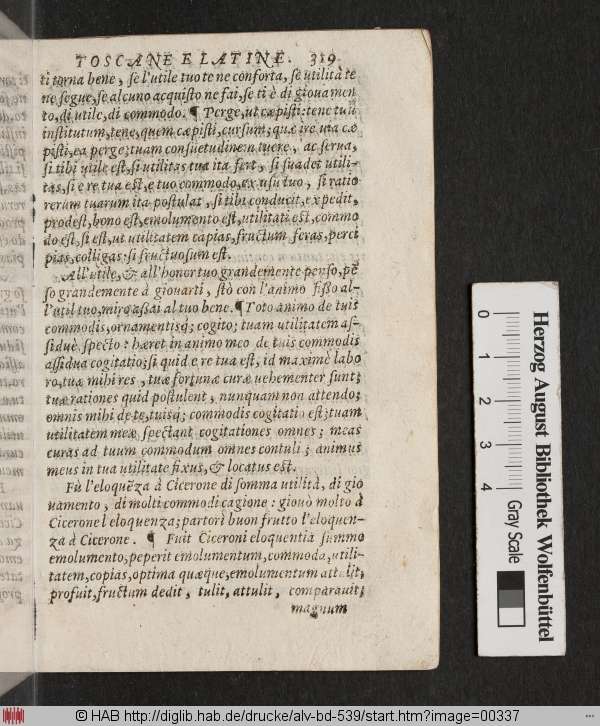 TOSCANE E LATINE. 319
ti torna bene, se l'utile tuo te ne conforta, se utilità te
ne segue, se alcuno acquisto ne fai, se ti è di giouamen
to, di utile, di commodo. ¶ Perge, ut cæpisti: tene tuũ
institutum, tene, quem cæpisti, cursum; quæ ire uia cæ
pisti, ea perge; tuam consuetudinem tuere, ac serua,
si tibi utile est, si utilitas tua ita fert, si suadet utili-
tas, si e re tua est, e tuo commodo, ex usu tuo, si ratio
rerum tuarum ita postulat, si tibi conducit, expedit,
prodest, bono est, emolumento est, utilitati est, commo
do est, si est, ut utilitatem capias, fructum feras, perci
pias, colligas: si fructuosum est.
All'utile, & all'honor tuo grandemente penso, pẽ
so grandemente à giouarti, stò con l'animo fisso al-
l'util tuo, miro assai al tuo bene. ¶ Toto animo de tuis
commodis, ornamentisq; cogito; tuam utilitatem as-
siduè specto: hæret in animo meo de tuis commodis
assidua cogitatio; si quid e re tua est, id maximè labo
ro, tuæ mihi res, tuæ fortunæ curæ uehementer sunt;
tuæ rationes quid postulent, nunquam non attendo;
omnis mihi de te, tuisq; commodis cogitatio est; tuam
utilitatem meæ spectant cogitationes omnes; meas
curas ad tuum commodum omnes contuli; animus
meus in tua utilitate fixus, & locatus est.
Fù l'eloquẽza à Cicerone di somma utilità, di gio
uamento, di molti commodi cagione: giouò molto à
Cicerone l eloquenza; partorì buon frutto l'eloquen-
za à Cicerone. ¶ Fuit Ciceroni eloquentia summo
emolumento, peperit emolumentum, commoda, utili-
tatem, copias, optima quæque, emolumentum attulit,
profuit, fructum dedit, tulit, attulit, comparauit;
magnum
0 1 2 3 4
Gray Scale
Herzog August Bibliothek Wolfenbüttel
© HAB http://diglib.hab.de/drucke/alv-bd-539/start.htm?image=00337